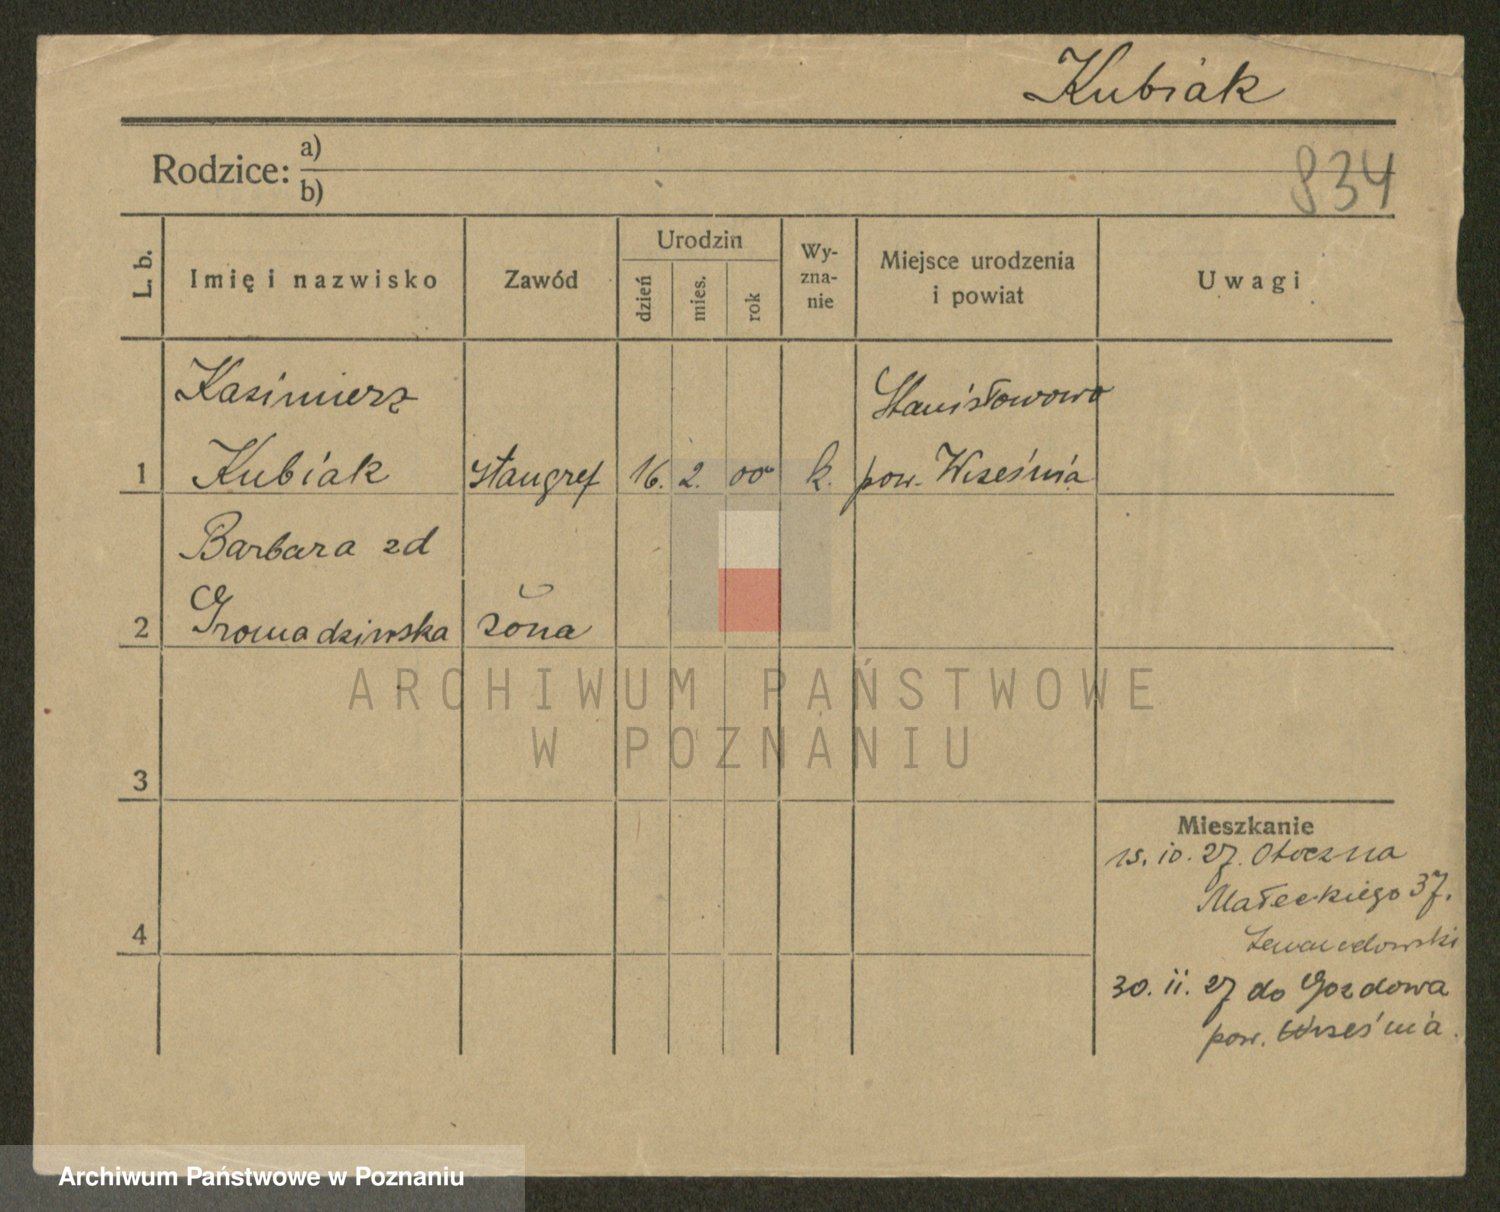 Kubiak
Rodzice: a)
b)
834
L. b.
Imię i nazwisko
Zawód
Urodzin
dzień
mies.
rok
Wy-
zna-
nie
Miejsce urodzenia
i powiat
Uwagi
Kazimierz
Stanisłowowo
1 Kubiak stangret 16. 2. 00 k. pow. Września
Barbara zd
2 Gromadzińska żona
ARCHIWUM PAŃSTWOWE
W POZNANIU
3
Mieszkanie
15. 10. 27. Otoczna
Małeckiego 37.
4
Lewandowski
30. 11. 27 do Gozdowa
pow. Września.
Archiwum Państwowe w Poznaniu